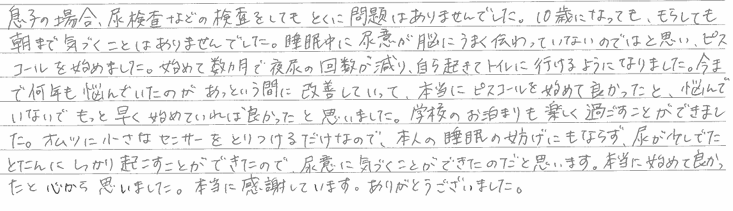 息子の場合、尿検査などの検査をしても とくに 問題はありませんでした。10歳になっても、もらしても
朝まで気づくことはありませんでした。睡眠中に 尿意が脳にうまく伝わっていないのではと思い、ピス
コールを始めました。始めて数カ月で夜尿の回数が減り、自ら起きてトイレに行けるようになりました。今ま
で何年も悩んでいたのが あっという間に 改善していって、本当にピスコールを始めて良かったと、悩んで
いないで もっと早く始めていれば良かった と 思いました。学校のお泊まりも楽しく過ごすことができまし
た。オムツに小さなセンサーをとりつけるだけなので、本人の睡眠の妨げにもならず、尿が少しでた
とたんに しっかり起こすことができたので、尿意に気づくことができたのだと思います。本当に始めて良かっ
たと 心から 思いました。本当に感謝しています。ありがとうございました。